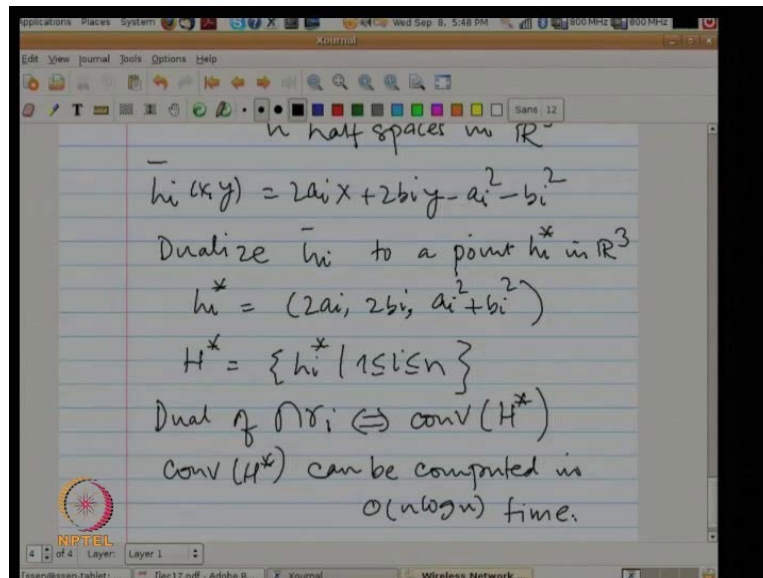 Applications Places System Wed Sep 8, 5:48 PM 800 MHz 800 MHz
Xournal
Edit View Journal Tools Options Help
Sans 12
n half spaces in R³
h̄i (x,y) = 2aix + 2biy - ai² - bi²
Dualize h̄i to a point hi* in R³
hi* = (2ai, 2bi, ai² + bi²)
H* = { hi* | 1≤i≤n }
Dual of ∩ri ⇔ conv (H*)
conv (H*) can be computed in
O(nlogn) time.
NPTEL
4 of 4 Layer: Layer 1
[ssen@ssen-tablet: lec17.pdf - Adobe R... Xournal Wireless Network